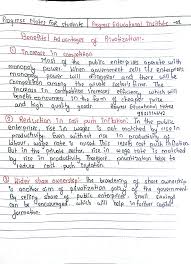 Progress Notes for students Progress Educational Institute
Benefits/Advantages of Privatization:-
① Increase in competition
Most of the public enterprises operate with
monopoly power. When government sells the
monopoly power will disappear and there will be
competition among the private sector firms. The
increase in competition increases efficiency, which will
benefit consumers in the form of cheaper price
and high quality goods
② Reduction in Cost push Inflation: In the public
enterprises, rise in wages is not matched by rise in
productivity. Even without rise in productivity of
labour, wage rate is raised. This results cost push inflation
But in the private sector, rise in wage rate is matched
by rise in productivity. Therefore privatization helps to
reduce cost push inflation.
③ Wider share ownership: The broadening of share ownership
is another aim of privatization policy of the government
By selling share of public enterprises, small savings
can be encouraged, which will help in further capital
formation.